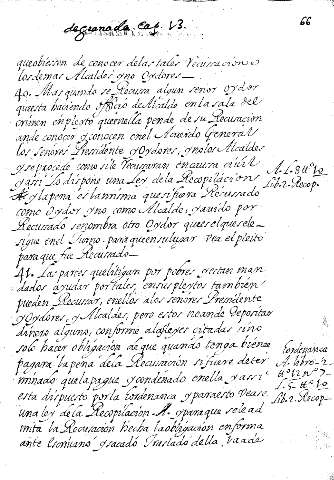 de granada Cap. 13.
66
que obiessen de conocer de las tales Recusaciones
los demas Alcaldes y no Oydores.
40. Mas quando se Recusa algun señor Oydor
que sta haciendo officio de Alcalde en la sala del
crimen en pleyto que en ella pende de su Recusacion
an de conocer y conocen en el Acuerdo General
los señores Presidente y Oydores, y no los Alcaldes
y se procede como si le Recusaran en causa civil
y assi lo dispone una Ley de la Recopilacion
y la pena es la misma que si fuera Recusado
como Oydor y no como Alcalde, y avido por
Recusado se nombra otro Oydor que es el que se le
sigue en el Turno, para que en su lugar vea el pleito
para que fue Recusado.
A. L. 8 tt.º 10
Lib. 2. Recop.
41. Las partes que litigan por pobres, o estan man
dados ayudar por tales, en sus pleytos tambien
pueden Recusar, en ellos a los señores Presidente
y Oydores, y Alcaldes, pero estos no an de Depositar
dinero alguno, conforme a las leyes citadas sino
solo hacer obligacion de que quando tenga bienes
pagara la pena de la Recusacion si fuere deter
minado que la pague y condenado en ella, y assi
esta dispuesto por la hordenança y para esto vease
una ley de la Recopilacion. A. y para que se le ad
mita la Recusacion hecha la obligacion conforma
ante Escrivano y sacado Traslado della,
hordenança
A. libro 2.
tt.º 12 n.º 7
L. 5 tt.º 10
Lib. 2. Recop.